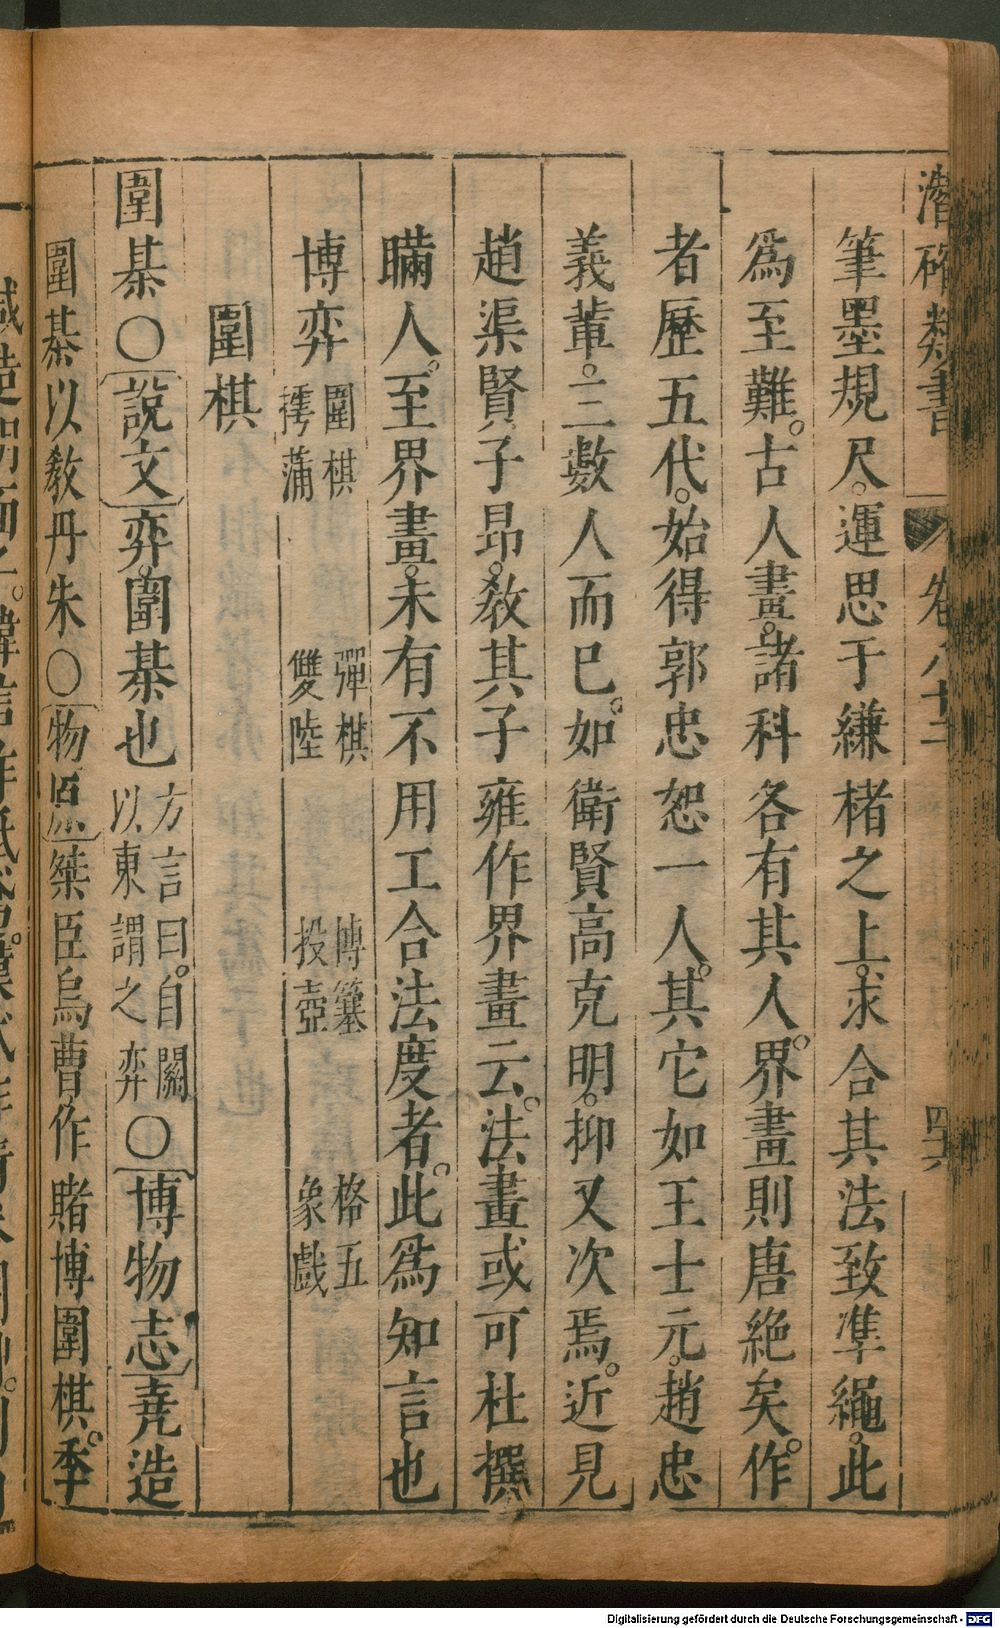 潛確類書 卷八十二 四六
筆墨規尺。運思于縑楮之上。求合其法致準繩。此
爲至難。古人畫。諸科各有其人。界畫則唐絕矣。作
者歷五代。始得郭忠恕一人。其它如王士元。趙忠
義輩。二數人而已。如衛賢高克明。抑又次焉。近見
趙渠賢子昂。敎其子雍作界畫云。法畫或可杜撰
瞞人。至界畫。未有不用工合法度者。此爲知言也
博弈 圍棋 樗蒲 彈棋 雙陸 博簺 投壺 格五 象戲
圍棋
圍棊○說文弈。圍棊也 方言曰。自關以東謂之弈 ○博物志堯造
圍棊以敎丹朱○物原桀臣烏曹作賭博圍棋。季
Digitalisierung gefördert durch die Deutsche Forschungsgemeinschaft - DFG